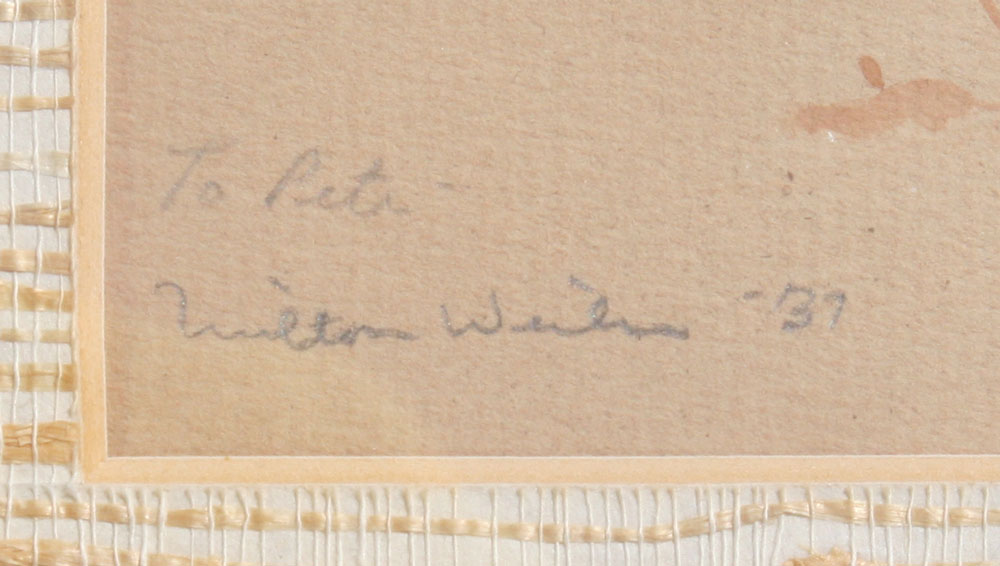 To Pete -
Milton Weiler - '37